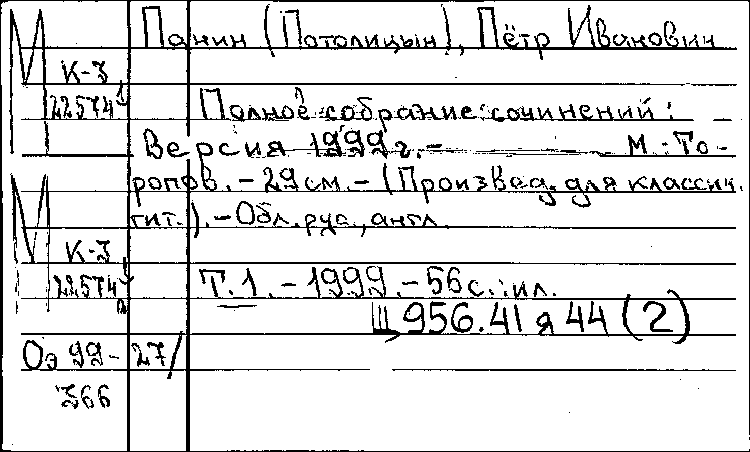 М Панин (Потолицын), Пётр Иванович
К-3
22574 Полное собрание сочинений:
Версия 1999г. - М.: То-
ропов. - 29см. - (Произвед. для классич.
гит.). - Обл. рус., англ.
М
К-3
22574 Т.1. - 1999. - 56с.: ил.
Щ 956.41 я 44 (2)
Оэ 99- 27/
366